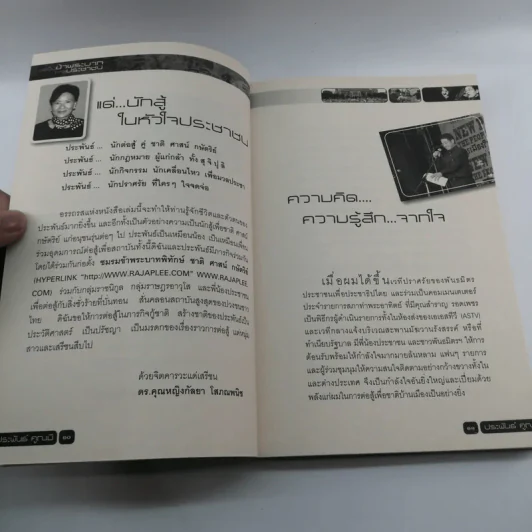 แด่...นักสู้
ในหัวใจประชาชน
ประพันธ์ ... นักต่อสู้ คู่ ชาติ ศาสน์ กษัตริย์
ประพันธ์ ... นักกฎหมาย ผู้แก่กล้า ทั้ง สุ จิ ปุ ลิ
ประพันธ์ ... นักกิจกรรม นักเคลื่อนไหว เพื่อมวลประชา
ประพันธ์ ... นักปราศรัย ที่ใครๆ ใจจดจ่อ
อรรถรสแห่งหนังสือเล่มนี้จะทำให้ท่านรู้จักชีวิตและตัวตนของ
ประพันธ์มากยิ่งขึ้น และอีกทั้งเป็นตัวอย่างความเป็นนักสู้เพื่อชาติ ศาสน์
กษัตริย์ แก่อนุชนรุ่นต่อๆ ไป ประพันธ์เป็นเหมือนน้อง เป็นเหมือนเพื่อน
ร่วมอุดมการณ์ต่อสู้เพื่อสถาบันทั้งนี้ดิฉันและประพันธ์มีภารกิจร่วมกัน
โดยได้ร่วมกันก่อตั้ง ชมรมข้าพระบาทพิทักษ์ ชาติ ศาสน์ กษัตริย์
(HYPERLINK "http://WWW.RAJAPLEE.COM" WWW.RAJAPLEE.
COM) ร่วมกับกลุ่มราชนิกูล กลุ่มราษฎรอาวุโส และพี่น้องประชาชน
เพื่อต่อสู้กับสิ่งชั่วร้ายที่บั่นทอน สั่นคลอนสถาบันสูงสุดของปวงชนชาว
ไทย ดิฉันขอให้การต่อสู้ในภารกิจกู้ชาติ สร้างชาติของประพันธ์เป็น
ประวัติศาสตร์ เป็นปรัชญา เป็นมรดกของเรื่องราวการต่อสู้ แด่หนุ่ม
สาวและเสรีชนสืบไป
ด้วยจิตคารวะแด่เสรีชน
ดร.คุณหญิงกัลยา โสภณพนิช
ประพันธ์ คูณมี ๑๐
ความคิด....
ความรู้สึก...จากใจ
เมื่อผมได้ขึ้นเวทีปราศรัยของพันธมิตร
ประชาชนเพื่อประชาธิปไตย และร่วมเป็นคอมเมนเตเตอร์
ประจำรายการสภาท่าพระอาทิตย์ ที่มีคุณสำราญ รอดเพชร
เป็นพิธีกรผู้ดำเนินรายการทั้งในห้องส่งของเอเอสทีวี (ASTV)
และเวทีกลางแจ้งบริเวณสะพานมัฆวานรังสรรค์ หรือที่
ทำเนียบรัฐบาล มีพี่น้องประชาชน และชาวพันธมิตรฯ ให้การ
ต้อนรับพร้อมให้กำลังใจมากมายล้นหลาม แฟนๆ รายการ
และผู้ร่วมชุมนุมให้ความสนใจติดตามอย่างกว้างขวางทั้งใน
และต่างประเทศ จึงเป็นกำลังใจอันยิ่งใหญ่และเปี่ยมด้วย
พลังแก่ผมในการต่อสู้เพื่อชาติบ้านเมืองเป็นอย่างยิ่ง
๑๑ ประพันธ์ คูณ